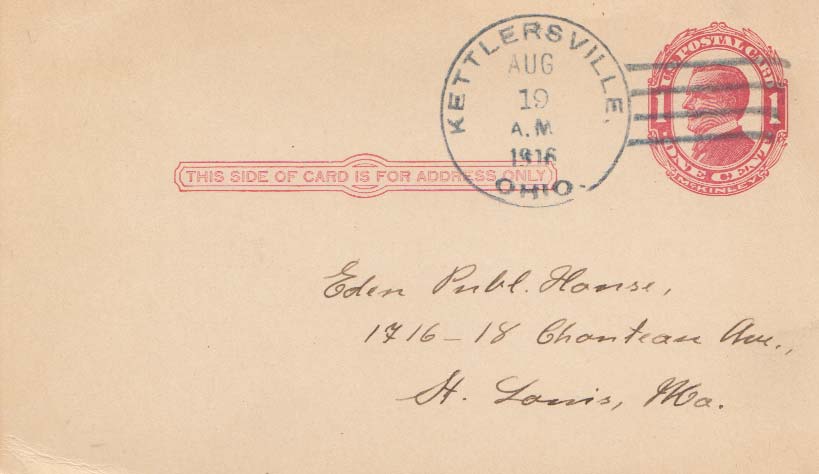 KETTLERSVILLE,
AUG
19
A.M.
1916
OHIO.
U.S. POSTAL CARD
1 1
ONE CENT
McKINLEY
THIS SIDE OF CARD IS FOR ADDRESS ONLY
Eden Publ. House,
1716-18 Chouteau Ave.,
St. Louis, Mo.